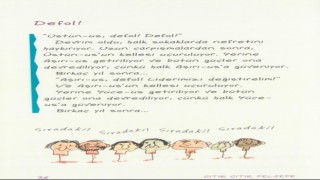 Defol!
"Üstün-us, defol! Defol!"
Devrim oldu, halk sokaklarda nefretini
haykırıyor. Uzun çarpışmalardan sonra,
Üstün-us'un kellesi uçuruluyor. Yerine
Aşırı-us getiriliyor ve bütün güçler ona
devrediliyor, çünkü halk Aşırı-us'a güveniyor.
Birkaç yıl sonra...
"Aşırı-us, defol! Liderimizi değiştirelim!"
Ve Aşırı-us'un kellesi uçuruluyor.
Yerine Yüce-us getiriliyor ve bütün güç-
ler ona devrediliyor, çünkü halk Yüce-
us'a güveniyor.
Birkaç yıl sonra...
Sıradaki! Sıradaki! Sıradaki! Sıradaki!
ÇITIR ÇITIR FELSEFE